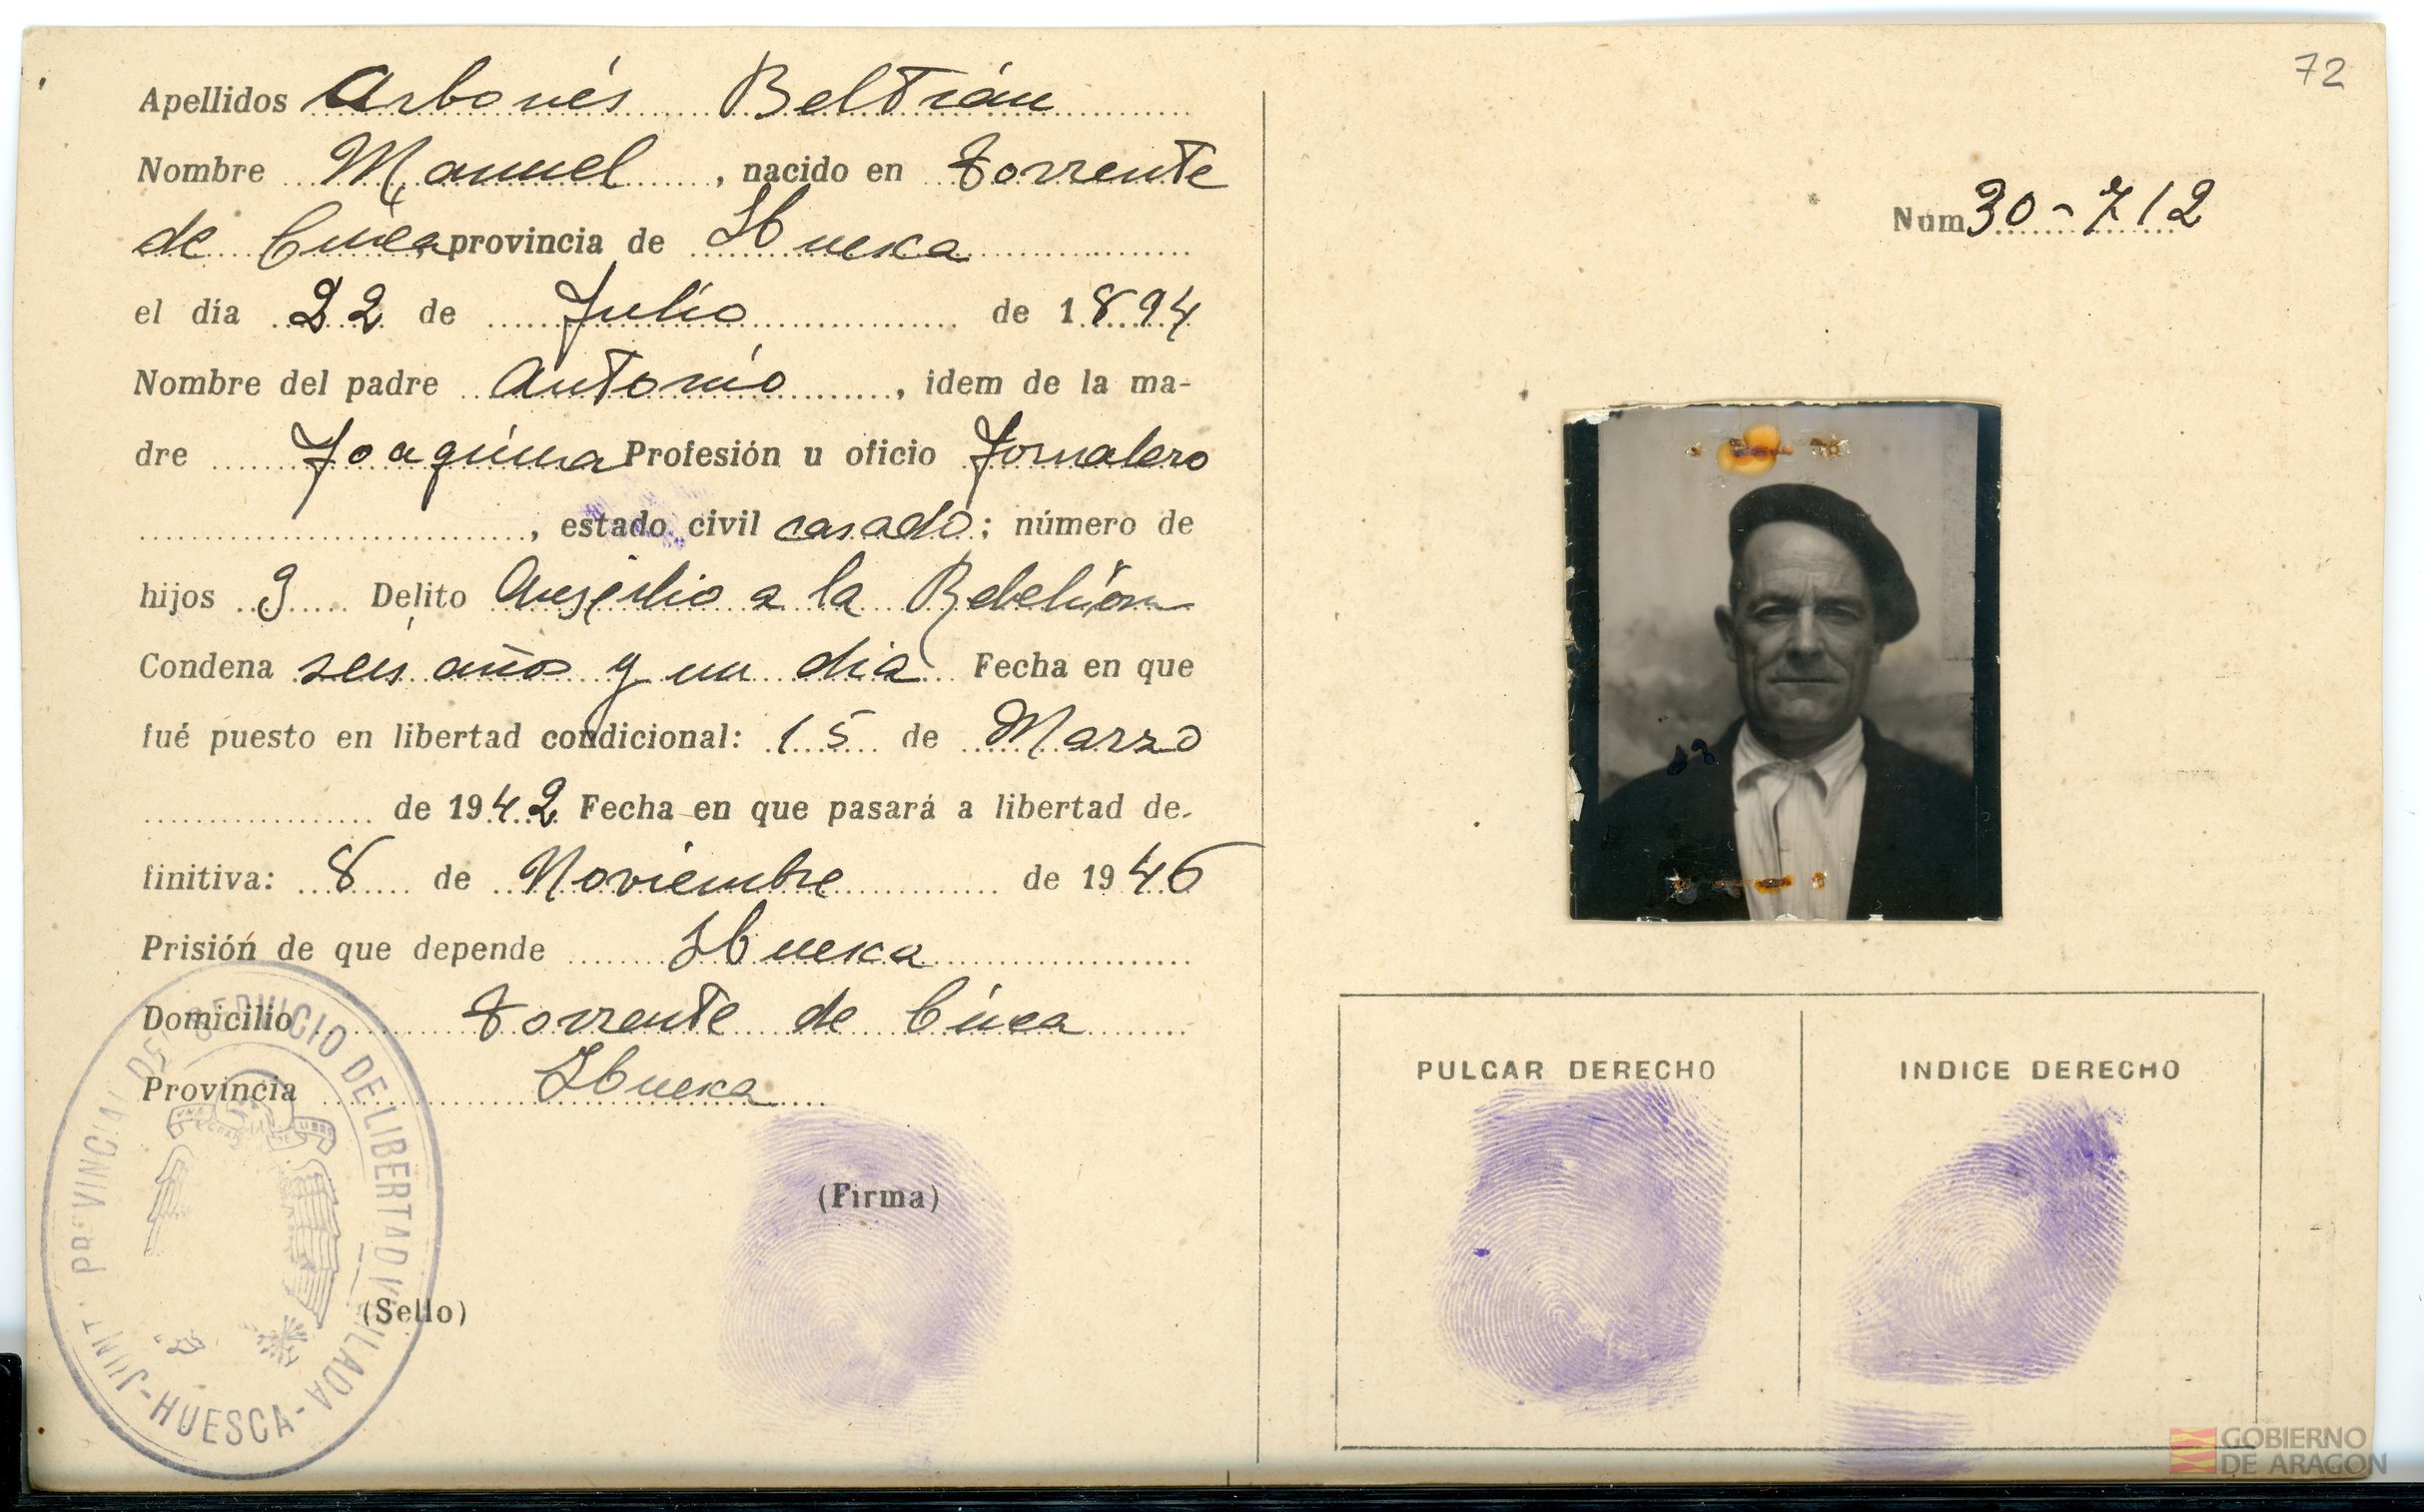 72
Apellidos Arbonés Beltrán
Nombre Manuel, nacido en Torrente
de Cinca provincia de Huesca
el día 22 de Julio de 1894
Nombre del padre Antonio, idem de la ma-
dre Joaquina Profesión u oficio Jornalero
, estado civil casado; número de
hijos 3 Delito Auxilio a la Rebelión
Condena seis años y un dia Fecha en que
fué puesto en libertad condicional: 15 de Marzo
de 1942 Fecha en que pasará a libertad de-
finitiva: 8 de Noviembre de 1946
Prisión de que depende Huesca
Domicilio Torrente de Cinca
Provincia Huesca
(Firma)
(Sello)
JUNTA PROVINCIAL DEL SERVICIO DE LIBERTAD VIGILADA -HUESCA-
Núm 30-712
PULGAR DERECHO
INDICE DERECHO
GOBIERNO
DE ARAGON